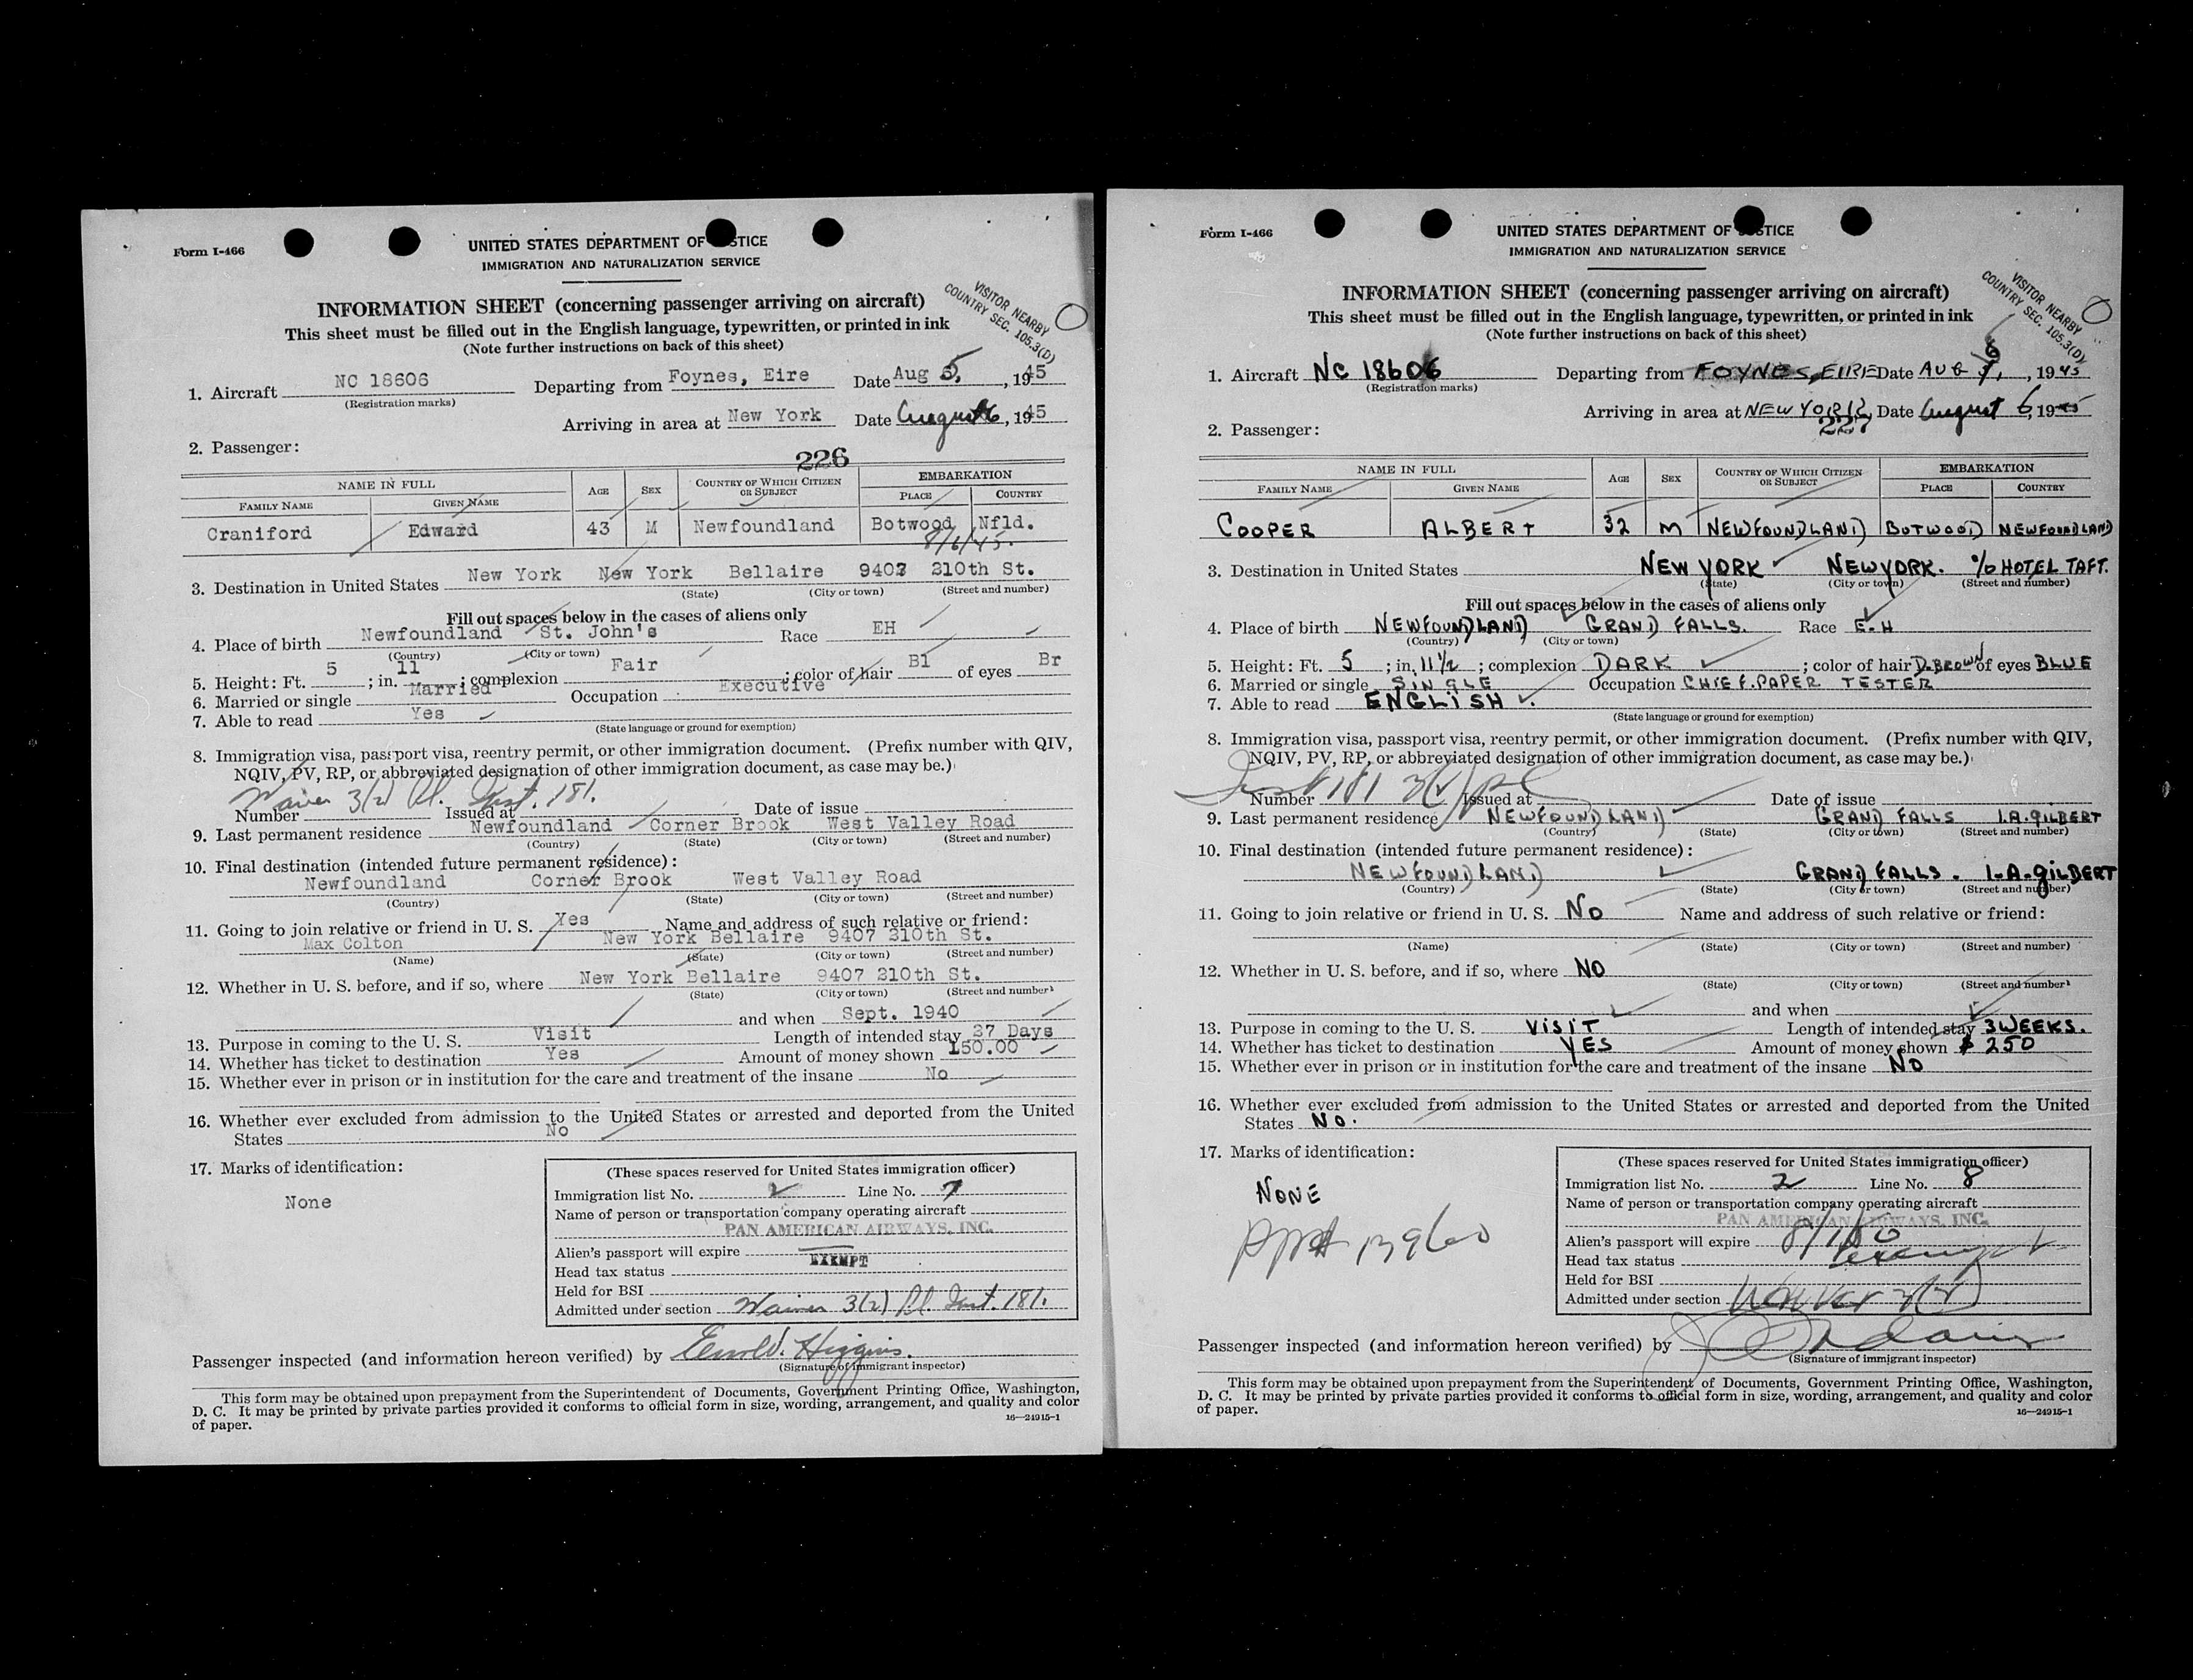 Form I-466
UNITED STATES DEPARTMENT OF JUSTICE
IMMIGRATION AND NATURALIZATION SERVICE
INFORMATION SHEET (concerning passenger arriving on aircraft)
This sheet must be filled out in the English language, typewritten, or printed in ink
(Note further instructions on back of this sheet)
VISITOR NEARBY
COUNTRY SEC. 105.3(D)
1. Aircraft NC 18606 Departing from Foynes, Eire Date Aug 5, , 1945
(Registration marks)
Arriving in area at New York Date August 6, 1945
2. Passenger:
226
NAME IN FULL AGE SEX COUNTRY OF WHICH CITIZEN OR SUBJECT EMBARKATION
FAMILY NAME GIVEN NAME PLACE COUNTRY
Craniford Edward 43 M Newfoundland Botwood Nfld.
8/6/45.
3. Destination in United States New York New York Bellaire 9407 210th St.
(State) (City or town) (Street and number)
Fill out spaces below in the cases of aliens only
4. Place of birth Newfoundland St. John's Race EH
(Country) (City or town)
5. Height: Ft. 5 ; in. 11 ; complexion Fair ; color of hair Bl of eyes Br
6. Married or single Married Occupation Executive
7. Able to read Yes
(State language or ground for exemption)
8. Immigration visa, passport visa, reentry permit, or other immigration document. (Prefix number with QIV,
NQIV, PV, RP, or abbreviated designation of other immigration document, as case may be.)
Waiver 3(2) Pl. Inst. 181.
Number Issued at Date of issue
9. Last permanent residence Newfoundland Corner Brook West Valley Road
(Country) (State) (City or town) (Street and number)
10. Final destination (intended future permanent residence):
Newfoundland Corner Brook West Valley Road
(Country) (State) (City or town) (Street and number)
11. Going to join relative or friend in U. S. Yes Name and address of such relative or friend:
Max Colton New York Bellaire 9407 210th St.
(Name) (State) (City or town) (Street and number)
12. Whether in U. S. before, and if so, where New York Bellaire 9407 210th St.
(State) (City or town) (Street and number)
and when Sept. 1940
13. Purpose in coming to the U. S. Visit Length of intended stay 27 Days
14. Whether has ticket to destination Yes Amount of money shown 150.00
15. Whether ever in prison or in institution for the care and treatment of the insane No
16. Whether ever excluded from admission to the United States or arrested and deported from the United
States No
17. Marks of identification:
None
(These spaces reserved for United States immigration officer)
Immigration list No. 2 Line No. 7
Name of person or transportation company operating aircraft
PAN AMERICAN AIRWAYS, INC.
Alien's passport will expire
Head tax status EXEMPT
Held for BSI
Admitted under section Waiver 3(2) Pl. Inst. 181.
Passenger inspected (and information hereon verified) by Higgins.
(Signature of immigrant inspector)
This form may be obtained upon prepayment from the Superintendent of Documents, Government Printing Office, Washington,
D. C. It may be printed by private parties provided it conforms to official form in size, wording, arrangement, and quality and color
of paper.
16—24915-1
Form I-466
UNITED STATES DEPARTMENT OF JUSTICE
IMMIGRATION AND NATURALIZATION SERVICE
INFORMATION SHEET (concerning passenger arriving on aircraft)
This sheet must be filled out in the English language, typewritten, or printed in ink
(Note further instructions on back of this sheet)
VISITOR NEARBY
COUNTRY SEC. 105.3(D)
1. Aircraft NC 18606 Departing from FOYNES, EIRE Date AUG 6, , 1945
(Registration marks)
Arriving in area at NEW YORK, Date August 6, 1945
227
2. Passenger:
NAME IN FULL AGE SEX COUNTRY OF WHICH CITIZEN OR SUBJECT EMBARKATION
FAMILY NAME GIVEN NAME PLACE COUNTRY
COOPER ALBERT 32 M NEWFOUNDLAND BOTWOOD NEWFOUNDLAND
3. Destination in United States NEW YORK NEW YORK. % HOTEL TAFT.
(State) (City or town) (Street and number)
Fill out spaces below in the cases of aliens only
4. Place of birth NEWFOUNDLAND GRAND FALLS. Race E.H
(Country) (City or town)
5. Height: Ft. 5 ; in. 11½ ; complexion DARK ; color of hair D.BROWN of eyes BLUE
6. Married or single SINGLE Occupation CHIEF. PAPER TESTER
7. Able to read ENGLISH.
(State language or ground for exemption)
8. Immigration visa, passport visa, reentry permit, or other immigration document. (Prefix number with QIV,
NQIV, PV, RP, or abbreviated designation of other immigration document, as case may be.)
Inst 181 3(2) pl
Number Issued at Date of issue
9. Last permanent residence NEWFOUNDLAND GRAND FALLS 1.A. GILBERT
(Country) (State) (City or town) (Street and number)
10. Final destination (intended future permanent residence):
NEWFOUNDLAND GRAND FALLS. 1-A-GILBERT
(Country) (State) (City or town) (Street and number)
11. Going to join relative or friend in U. S. NO Name and address of such relative or friend:
(Name) (State) (City or town) (Street and number)
12. Whether in U. S. before, and if so, where NO
(State) (City or town) (Street and number)
and when
13. Purpose in coming to the U. S. VISIT Length of intended stay 3 WEEKS.
14. Whether has ticket to destination YES Amount of money shown $ 250
15. Whether ever in prison or in institution for the care and treatment of the insane NO
16. Whether ever excluded from admission to the United States or arrested and deported from the United
States NO.
17. Marks of identification:
NONE
PPT# 13960
(These spaces reserved for United States immigration officer)
Immigration list No. 2 Line No. 8
Name of person or transportation company operating aircraft
PAN AMERICAN AIRWAYS, INC.
Alien's passport will expire 8/1/50
Head tax status exempt
Held for BSI
Admitted under section Waiver 3(2)
Passenger inspected (and information hereon verified) by
(Signature of immigrant inspector)
This form may be obtained upon prepayment from the Superintendent of Documents, Government Printing Office, Washington,
D. C. It may be printed by private parties provided it conforms to official form in size, wording, arrangement, and quality and color
of paper.
16—24915-1